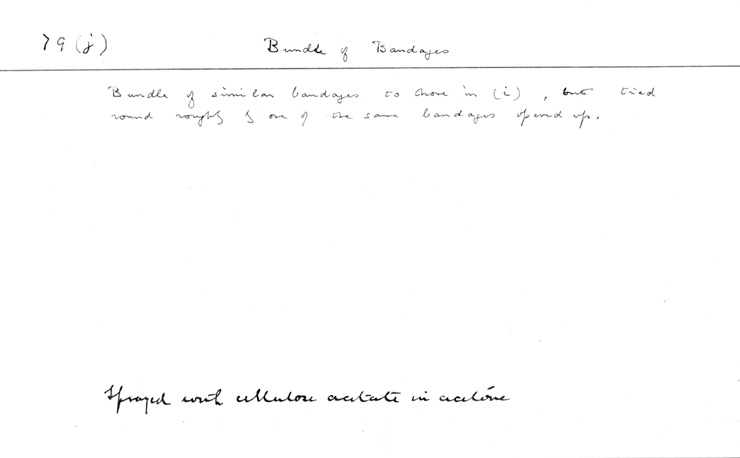 79 (j) Bundle of Bandages
Bundle of similar bandages to those in (i), but tied
round roughly by one of the same bandages opened up.
Sprayed with cellulose acetate in acetone